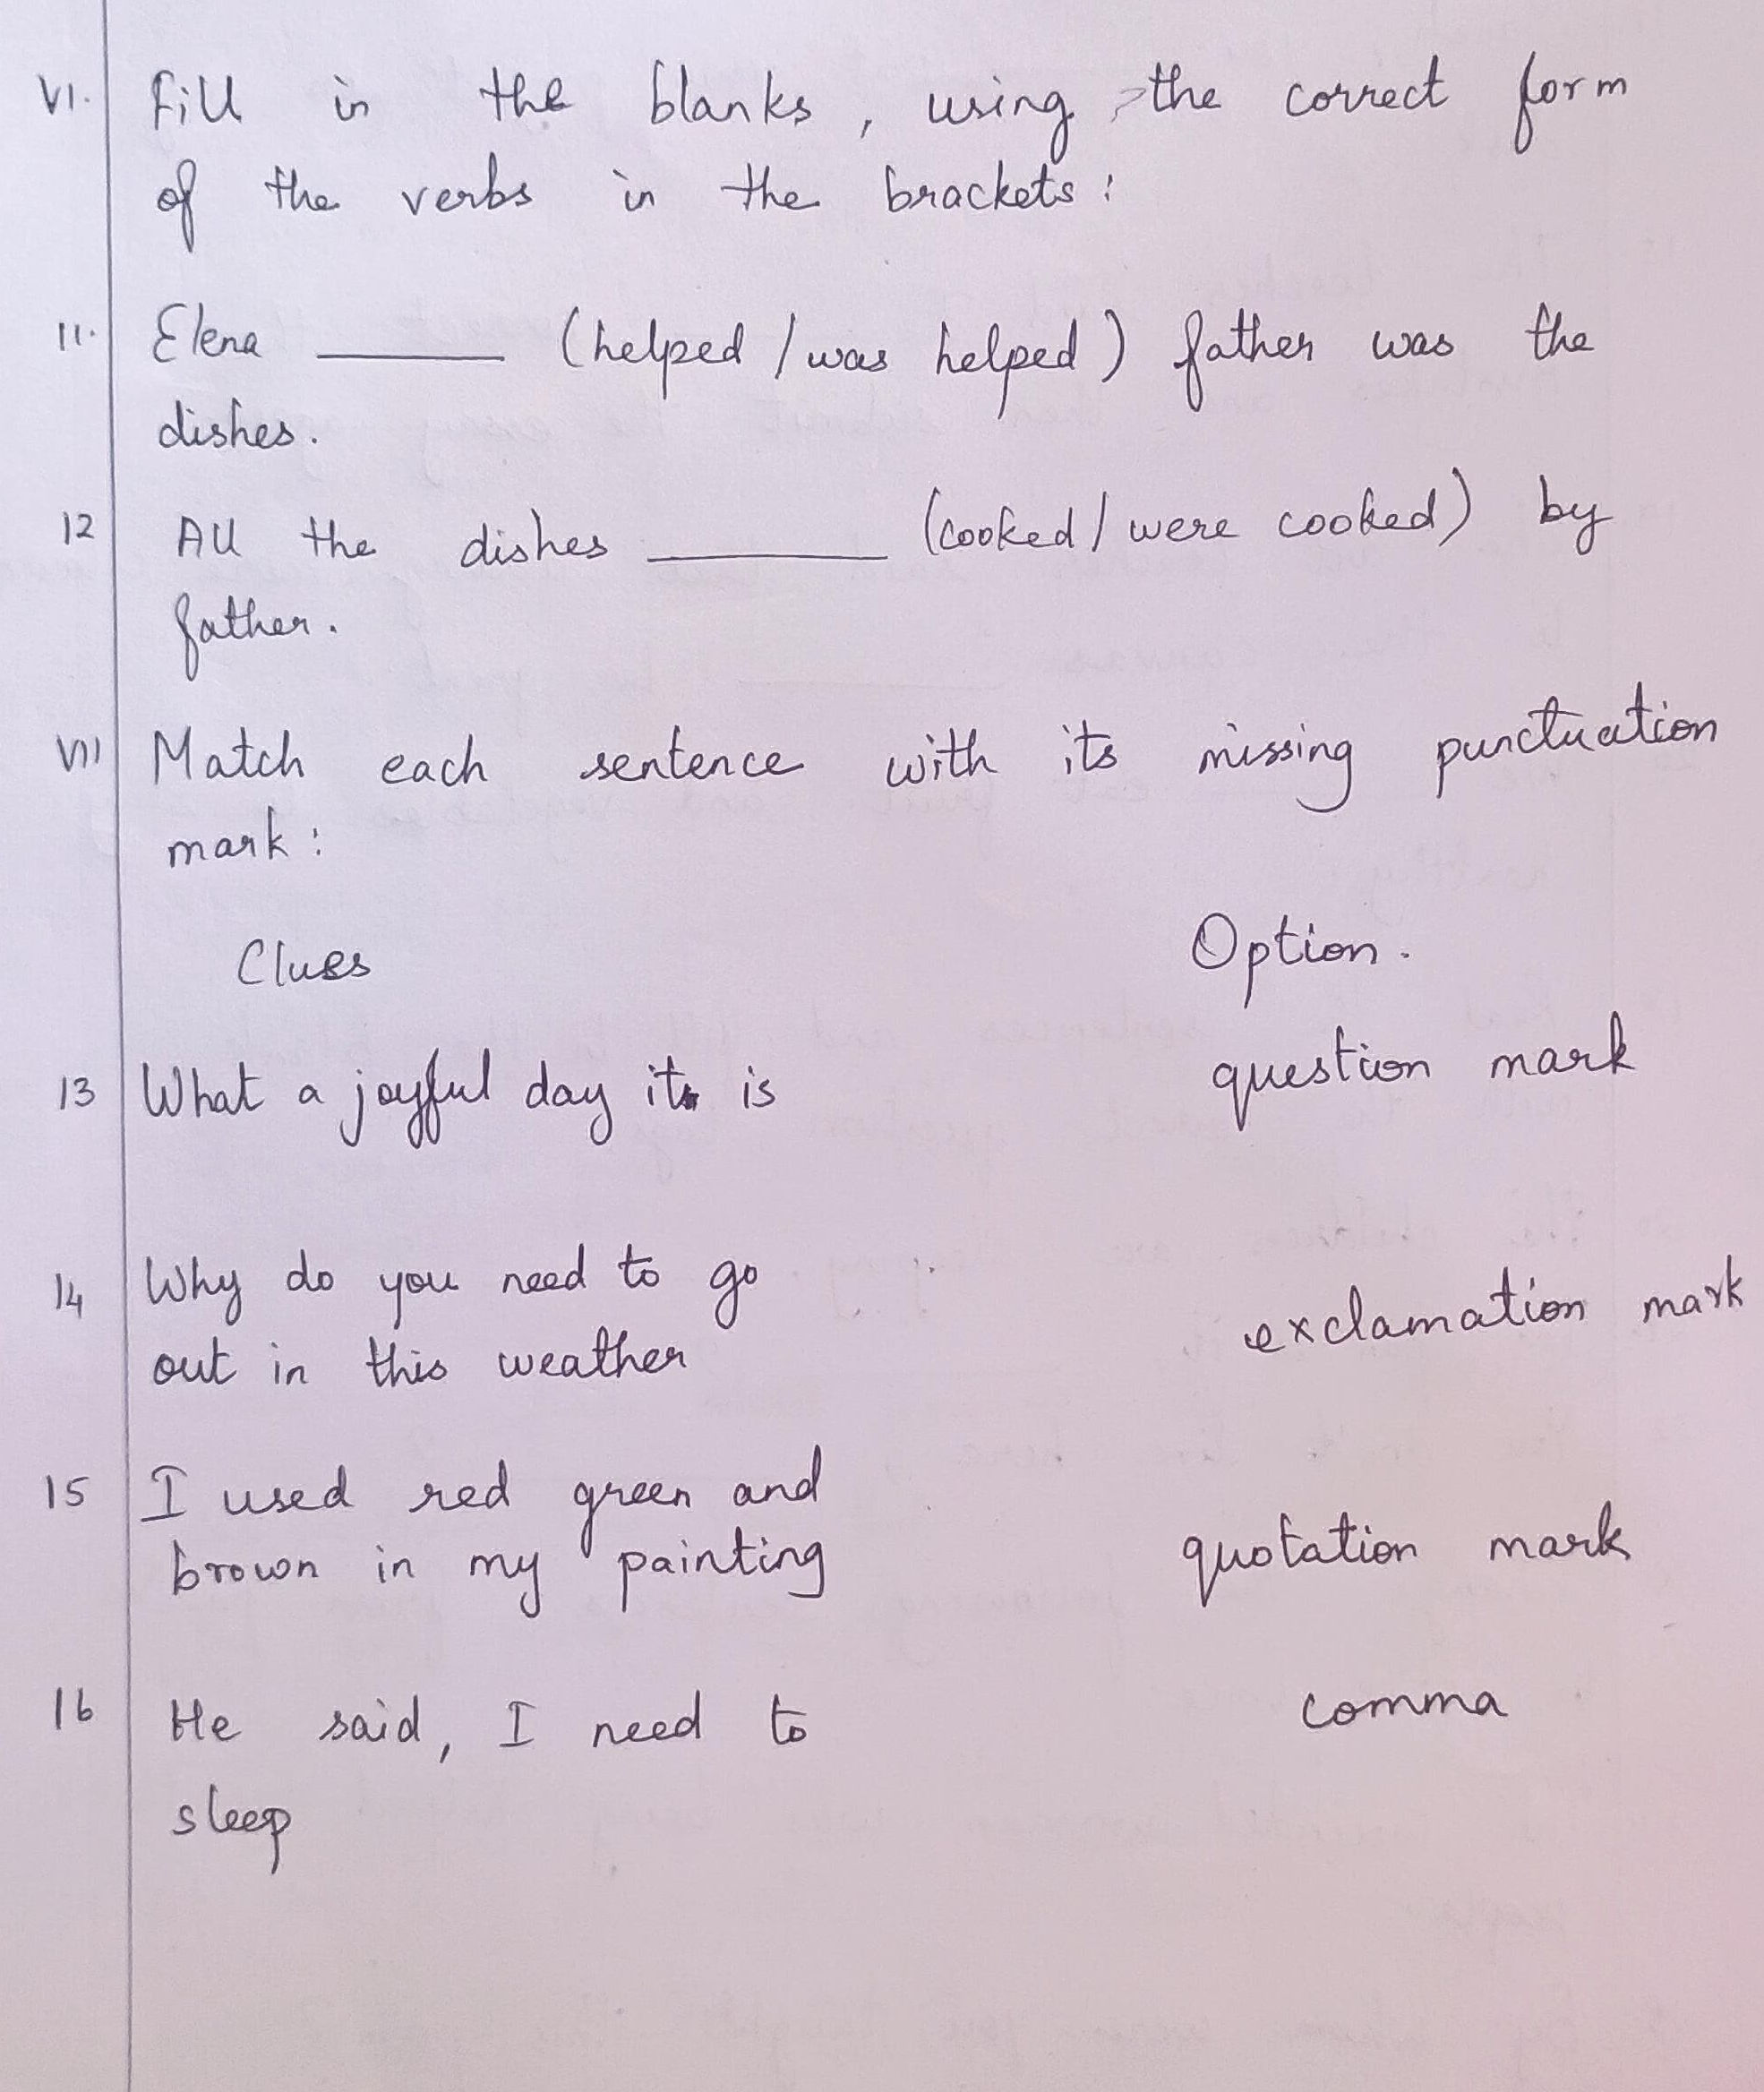 VI. Fill in the blanks, using the correct form
of the verbs in the brackets:
11. Elena ______ (helped / was helped) father was the
dishes.
12 All the dishes ______ (cooked / were cooked) by
father.
VII Match each sentence with its missing punctuation
mark:
Clues Option.
13 What a joyful day it is question mark
14 Why do you need to go
out in this weather exclamation mark
15 I used red green and
brown in my painting quotation mark
16 He said, I need to comma
sleep